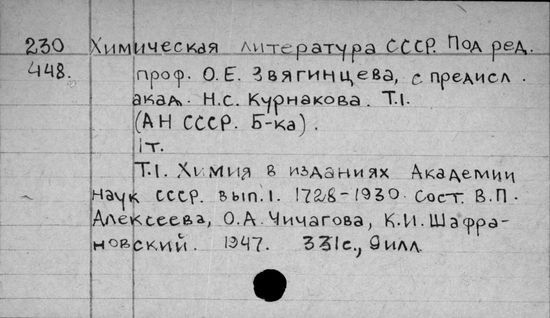 230 Химическая литература СССР. Под ред.
448. проф. О.Е. Звягинцева, с предисл.
акад. Н.С. Курнакова. Т.1.
(АН СССР. Б-ка).
1т.
Т.1. Химия в изданиях Академии
наук СССР. вып.1. 1728-1930. Сост. В.П.
Алексеева, О.А. Чичагова, К.И. Шафра-
новский. 1947. 331с., 9илл.